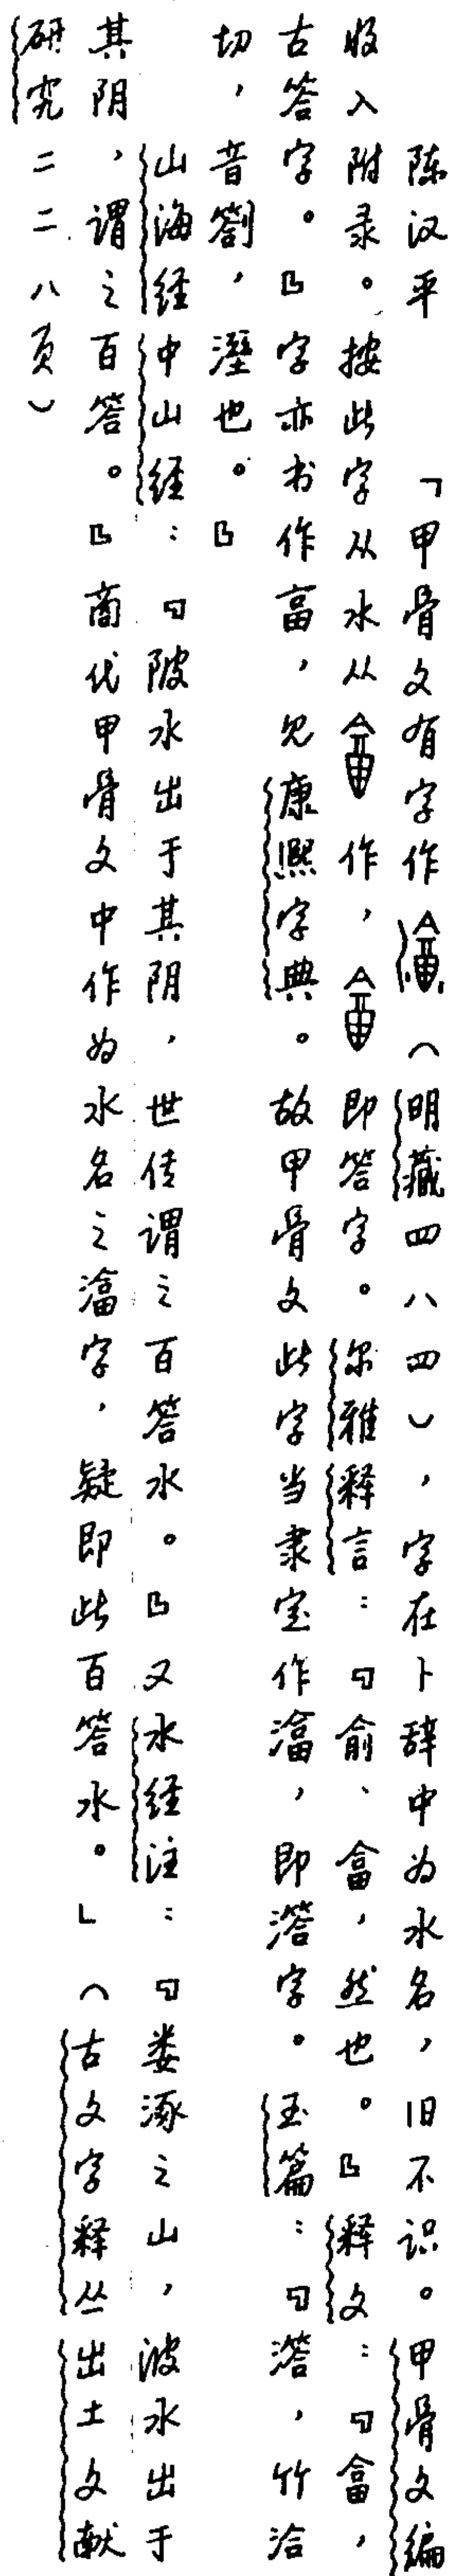 陈汉平 「甲骨文有字作（明藏四八四），字在卜辞中为水名，旧不识。甲骨文编
收入附录。按此字从水从作，即答字。尔雅释言：『俞、畣，然也。』释文：『畣，
古答字。』字亦书作，见康熙字典。故甲骨文此字当隶定作，即字。玉篇：『，竹洽
切，音劄，溼也。』
山海经中山经：『陂水出于其阴，世传谓之百答水。』又水经注：『娄涿之山，波水出于
其阴，谓之百答。』商代甲骨文中作为水名之字，疑即此百答水。」（古文字释丛出土文献
研究二二八页）